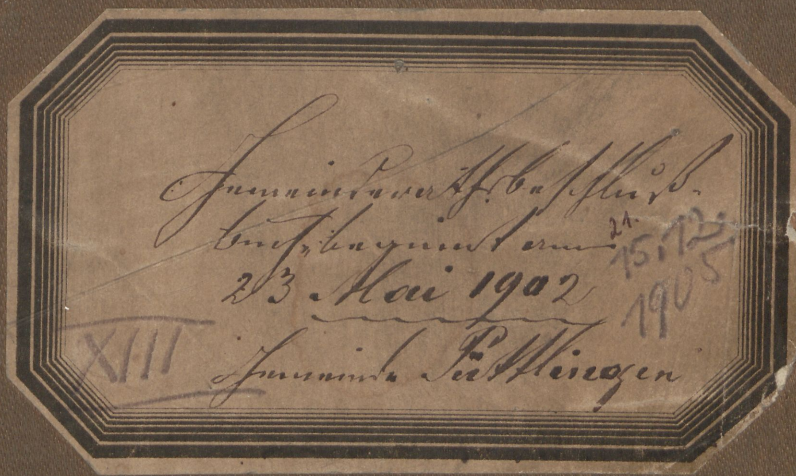 Gemeinderathsbeschluß-
buch, beginnt am
23 Mai 1902
Gemeinde Püttlingen
21.
15.12.
1905
XIII